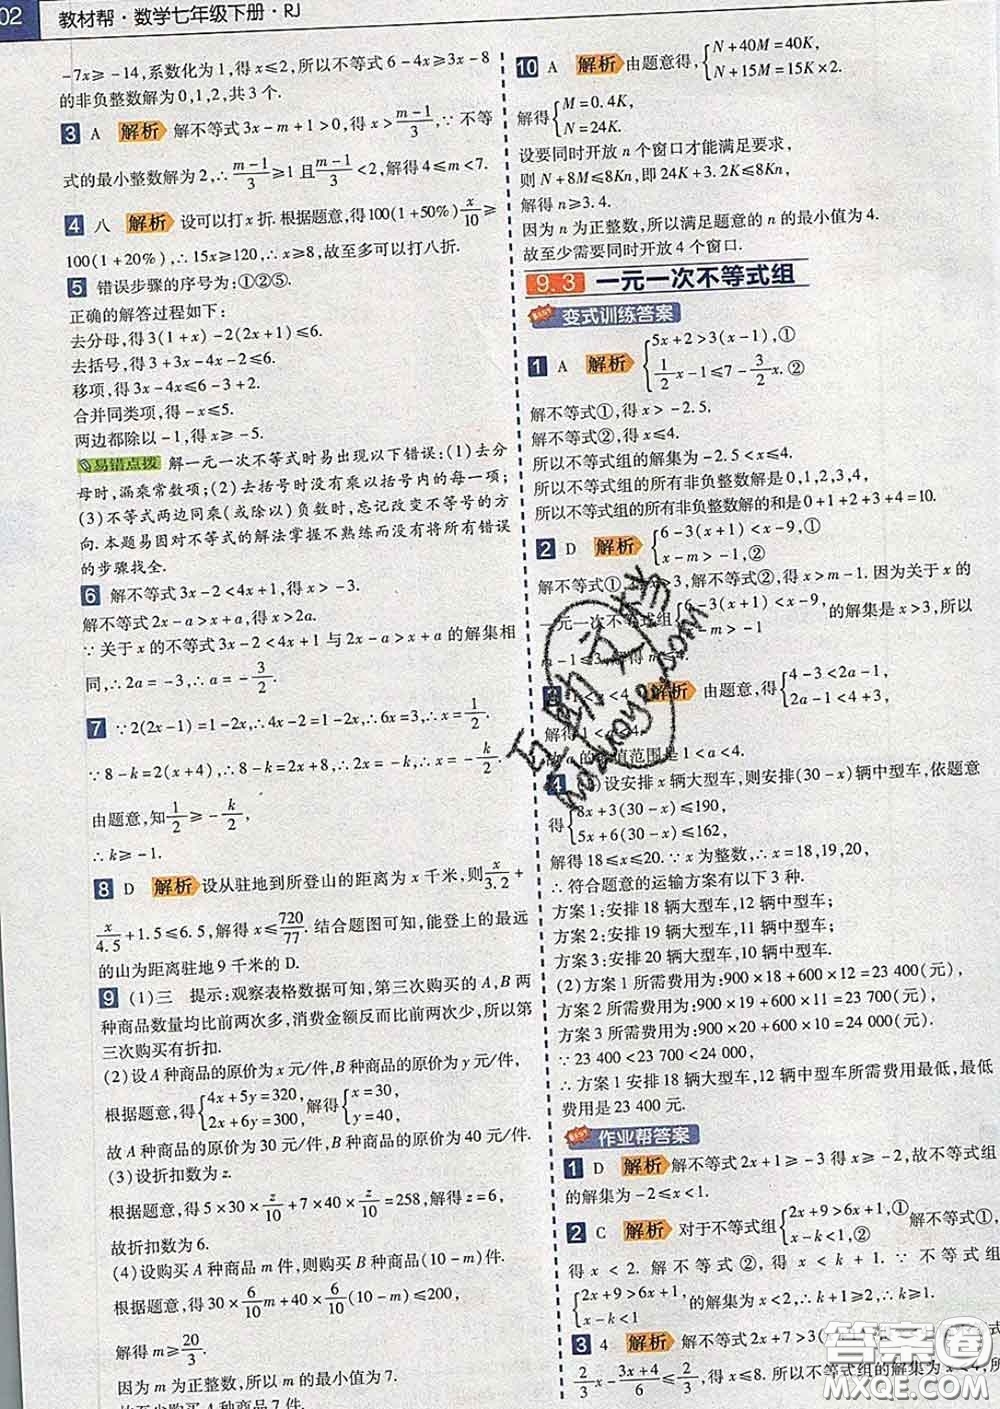 02 教材帮·数学七年级下册·RJ
-7x≥-14,系数化为1,得x≤2,所以不等式6-4x≥3x-8
的非负整数解为0,1,2,共3个.
3 A 解析 解不等式3x-m+1>0,得x>(m-1)/3,∵不等
式的最小整数解为2,∴(m-1)/3≥1且(m-1)/3<2,解得4≤m<7.
4 八 解析 设可以打x折.根据题意,得100(1+50%)x/10≥
100(1+20%),∴15x≥120,∴x≥8,故至多可以打八折.
5 错误步骤的序号为:①②⑤.
正确的解答过程如下:
去分母,得3(1+x)-2(2x+1)≤6.
去括号,得3+3x-4x-2≤6.
移项,得3x-4x≤6-3+2.
合并同类项,得-x≤5.
两边都除以-1,得x≥-5.
易错点拨 解一元一次不等式时易出现以下错误:(1)去分
母时,漏乘常数项;(2)去括号时没有乘以括号内的每一项;
(3)不等式两边同乘(或除以)负数时,忘记改变不等号的方
向.本题易因对不等式的解法掌握不熟练而没有将所有错误
的步骤找全.
6 解不等式3x-2<4x+1,得x>-3.
解不等式2x-a>x+a,得x>2a.
∵关于x的不等式3x-2<4x+1与2x-a>x+a的解集相
同,∴2a=-3,∴a=-3/2.
7 ∵2(2x-1)=1-2x,∴4x-2=1-2x,∴6x=3,∴x=1/2.
∵8-k=2(x+4),∴8-k=2x+8,∴2x=-k,∴x=-k/2,
由题意,知1/2≥-k/2,
∴k≥-1.
8 D 解析 设从驻地到所登山的距离为x千米,则x/3.2+
x/4.5+1.5≤6.5,解得x≤720/77.结合题图可知,能登上的最远
的山为距离驻地9千米的D.
9 (1)三 提示:观察表格数据可知,第三次购买的A,B两
种商品数量均比前两次多,消费金额反而比前两次少,所以第
三次购买有折扣.
(2)设A种商品的原价为x元/件,B种商品的原价为y元/件,
根据题意,得{4x+5y=320, 2x+6y=300,解得{x=30, y=40.
故A种商品的原价为30元/件,B种商品的原价为40元/件.
(3)设折扣数为z.
根据题意,得5×30×z/10+7×40×z/10=258,解得z=6,
故折扣数为6.
(4)设购买A种商品m件,则购买B种商品(10-m)件.
根据题意,得30×6/10m+40×6/10(10-m)≤200,
解得m≥20/3.
因为m为正整数,所以m的最小值为7.
10 A 解析 由题意得,{N+40M=40K, N+15M=15K×2.
解得{M=0.4K, N=24K.
设要同时开放n个窗口才能满足要求,
则N+8M≤8Kn,即24K+3.2K≤8Kn,
解得n≥3.4.
因为n为正整数,所以满足题意的n的最小值为4.
故至少需要同时开放4个窗口.
9.3 一元一次不等式组
变式训练答案
1 A 解析 {5x+2>3(x-1),① 1/2x-1≤7-3/2x.②
解不等式①,得x>-2.5.
解不等式②,得x≤4.
所以不等式组的解集为-2.5<x≤4.
所以不等式组的所有非负整数解是0,1,2,3,4,
所以不等式组的所有非负整数解的和是0+1+2+3+4=10.
2 D 解析 {6-3(x+1)<x-9,① x-m>-1,②
解不等式①,得x>3,解不等式②,得x>m-1.因为关于x的
一元一次不等式组{6-3(x+1)<x-9, x-m>-1的解集是x>3,所以
m-1≤3,解得m≤4.
3 1<a<4 解析 由题意,得{4-3<2a-1, 2a-1<4+3,
解得1<a<4.
故a的取值范围是1<a<4.
4 (1)设安排x辆大型车,则安排(30-x)辆中型车,依题意
得{8x+3(30-x)≤190, 5x+6(30-x)≤162,
解得18≤x≤20.∵x为整数,∴x=18,19,20,
∴符合题意的运输方案有以下3种.
方案1:安排18辆大型车,12辆中型车;
方案2:安排19辆大型车,11辆中型车;
方案3:安排20辆大型车,10辆中型车.
(2)方案1所需费用为:900×18+600×12=23 400(元),
方案2所需费用为:900×19+600×11=23 700(元),
方案3所需费用为:900×20+600×10=24 000(元).
∵23 400<23 700<24 000,
∴方案1安排18辆大型车,12辆中型车所需费用最低,最低
费用是23 400元.
作业帮答案
1 D 解析 解不等式2x+1≥-3得x≥-2,故不等式组
的解集为-2≤x<1.
2 C 解析 对于不等式组{2x+9>6x+1,① x-k<1,②解不等式①,
得x<2.解不等式②,得x<k+1.∵不等式组
{2x+9>6x+1, x-k<1的解集为x<2,∴k+1≥2,解得k≥1.
3 4 解析 解不等式2x+7>3
2/3x-(3x+4)/6≤2/3,得x≤8.所以不等式组的解集为
互助文档
hdzuoye.com
答案圈
MXQE.COM